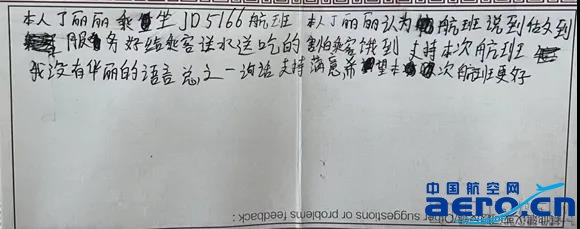 本人丁丽丽乘坐JD5166航班 本人丁丽丽认为航班说到做到
服务好给乘客送水送吃的害怕乘客饿到支持本次航班
我没有华丽的语言总之一句话支持满意希望本次航班更好
中国航空网
aero.cn
Other suggestions or problems feedback: